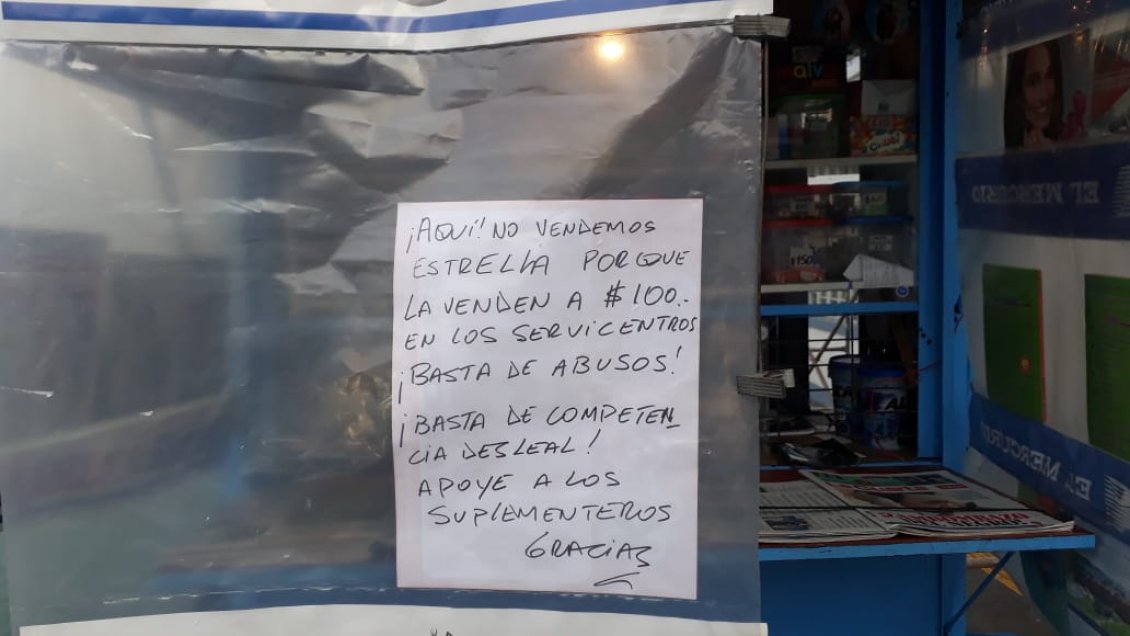 ¡AQUÍ! NO VENDEMOS
ESTRELLA PORQUE
LA VENDEN A $100.-
EN LOS SERVICENTROS
¡BASTA DE ABUSOS!
¡BASTA DE COMPETEN-
CIA DESLEAL!
APOYE A LOS
SUPLEMENTEROS
GRACIAS
EL MERCURIO
EL MERCURIO